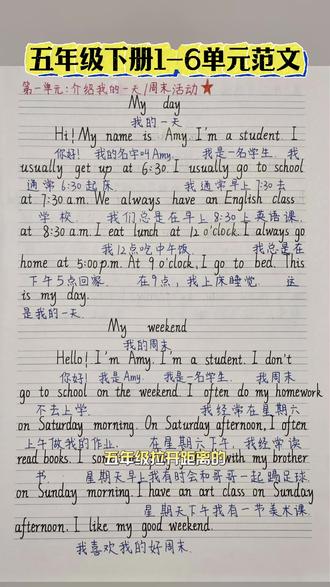 五年级下册1-6单元范文
第一单元:介绍我的一天/周末活动
My day
我的一天
Hi! My name is Amy. I'm a student. I
你好! 我的名字叫Amy. 我是一名学生. 我
usually get up at 6:30. I usually go to school
通常6:30起床. 我通常早上7:30去
at 7:30 a.m. We always have an English class
学校. 我们总是在早上8:30上英语课.
at 8:30 a.m. I eat lunch at 12 o'clock. I always go
我12点吃中午饭. 我总是在
home at 5:00 p.m. At 9 o'clock, I go to bed. This
下午5点回家. 在9点,我上床睡觉. 这
is my day.
是我的一天.
My weekend
我的周末
Hello! I'm Amy. I'm a student. I don't
你好! 我是Amy. 我是一名学生. 我周末
go to school on the weekend. I often do my homework
不去上学. 我经常在星期六
on Saturday morning. On Saturday afternoon, I often
上午做我的作业. 在星期六下午,我经常读
read books. I with my brother
五年级拉开距离的
书. 星期天早上我有时会和哥哥一起踢足球.
on Sunday morning. I have an art class on Sunday
星期天下午我有一节美术课.
afternoon. I like my good weekend.
我喜欢我的好周末.